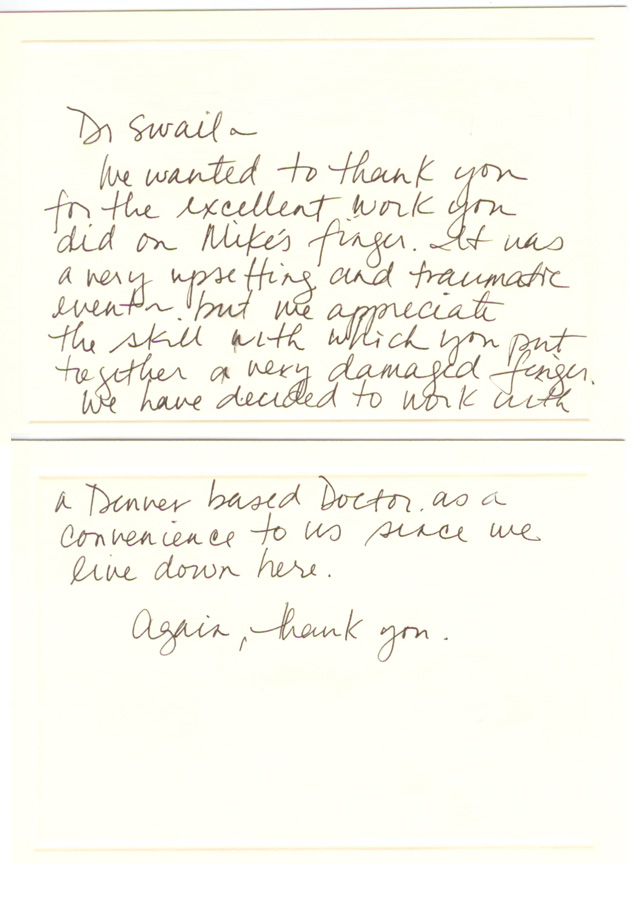 Dr Swail ~
We wanted to thank you
for the excellent work you
did on Mike's finger. It was
a very upsetting and traumatic
event ~ but we appreciate
the skill with which you put
together a very damaged finger.
We have decided to work with
a Denver based Doctor as a
convenience to us since we
live down here.
Again, thank you.